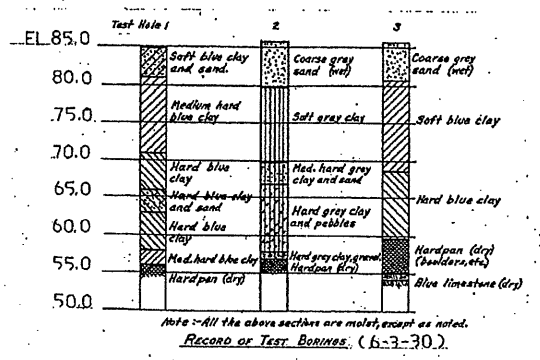 Test Hole 1
2
3
EL.85.0
80.0
75.0
70.0
65.0
60.0
55.0
50.0
Soft blue clay
and sand.
Medium hard
blue clay
Hard blue
clay
Hard blue clay
and sand
Hard blue
clay
Med. hard blue clay
Hardpan (dry)
Coarse grey
sand (wet)
Soft gray clay
Med. hard grey
clay and sand
Hard grey clay
and pebbles
Hard grey clay, gravel
Hardpan (dry)
Coarse grey
sand (wet)
Soft blue clay
Hard blue clay
Hardpan (dry)
(boulders, etc.)
Blue limestone (dry)
Note :- All the above sections are moist, except as noted.
RECORD OF TEST BORINGS (6-3-30)